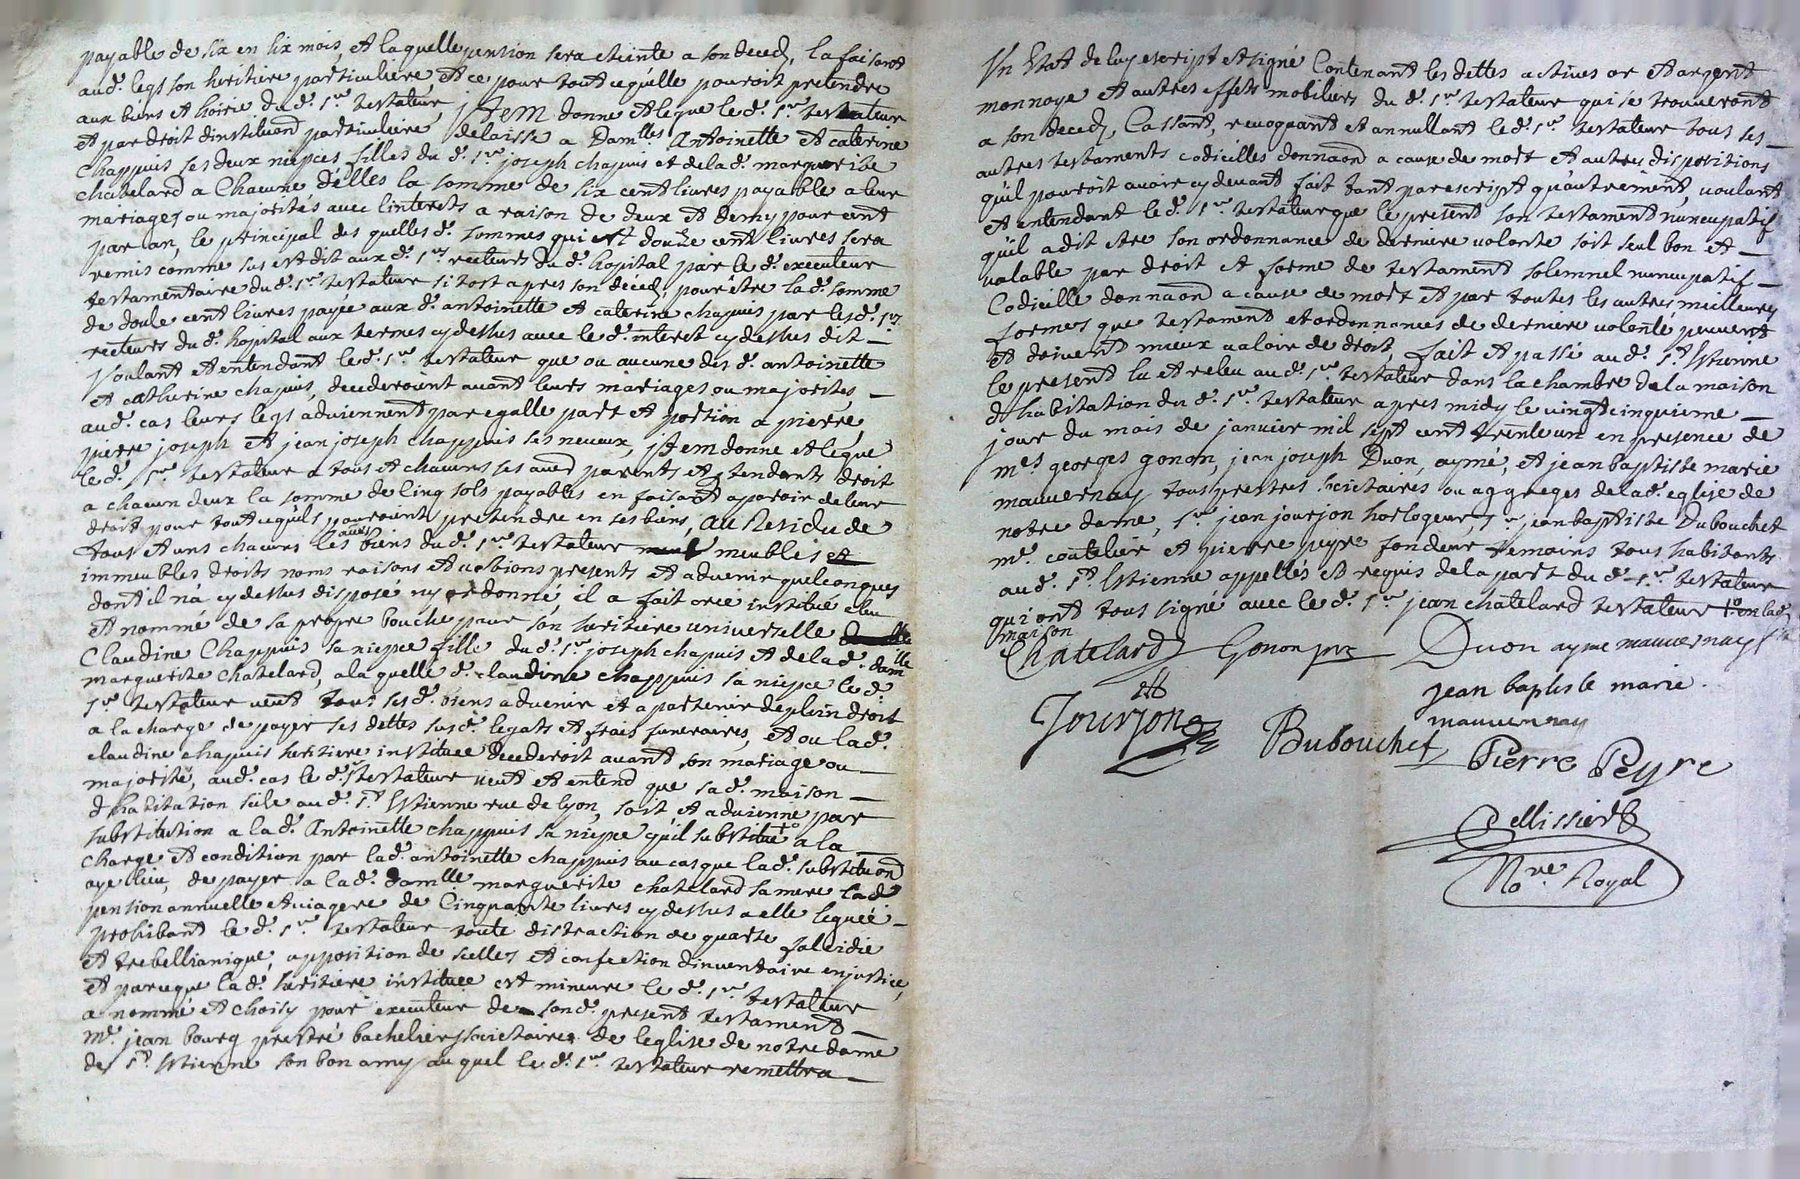 payable de six en six mois, et laquelle pension sera eteinte a son deced, la faisant
aud. legs son heritiere particuliere et ce pour tout ce qu'elle pouroit pretendre
aux biens et hoirie du d. sr testateur, item donne et legue le d. sr testateur
et par droit d'instituaon particuliere delaisse a Damlles Antoinette et caterine
Chappuis ses deux niepces filles du d. sr joseph chapuis et de la d. marguerite
chatelard a Chacune d'elles la somme de six cent livres payable a leur
mariages ou majorités avec l'interets a raison de deux et demy pour cent
par an, le principal des quelles d. sommes qui est douze cent livres sera
remis comme sus est dit aux d. srs recteurs du d. hopital par le d. executeur
testamentaire du d. sr testateur si tost apres son deced, pour être la d. somme
de douze cent livres payée aux d. antoinette et caterine chapuis par les d. srs
recteurs du d. hopital aux termes cy dessus avec le d. interet cy dessus dit
Voulant et entendant le d. sr testateur que ou aucune des d. antoinette
et catherine chapuis, decederoient avant leurs mariages ou majorites
aud. cas leurs legs adviennent par egalle part et portion a pierre,
pierre joseph et jean joseph chappuis ses neveux, item donne et legue
le d. sr testateur a tous et chacuns ses aud parents et tendants droit
a chacun deux la somme de Cinq sols payables en faisant aparoir de leur
droit pour tout ce qu'ils pouroient pretendre en ses biens, au Residu de
tous et uns chacuns les autres biens du d. sr testateur meubles et
immeubles droits noms raisons et actions presents et advenir quelconques
dont il n'a cy dessus disposé ny ordonné, il a fait créé institué elu
et nommé de sa propre bouche pour son heritiere universelle
Claudine Chappuis sa niepce fille du d. sr joseph chapuis et de la d. damlle
marguerite chatelard, a laquelle d. claudine chappuis sa niepce le d.
sr testateur veut tous ses d. biens advenir et apartenir de plein droit
a la charge de payer ses dettes sus d. legats et frais funeraires, et ou la d.
claudine chapuis heritiere instituee decederoit avant son mariage ou
majorité, aud. cas le d. sr testateur veut et entend que sa d. maison
d'habitation size au d. st Estienne rue de lyon, soit et advienne par
substitution a la d. Antoinette chappuis sa niepce qu'il substitue a la
charge et condition par la d. antoinette chappuis au cas que la d. substituon
aye lieu, de payer a la d. damlle marguerite chatelard sa mere la d.
pension annuelle et viagere de Cinquante livres cy dessus a elle leguée
prohibant le d. sr testateur toute distraction de quarte falcidie
et trebellianique, apposition de scelles et confection d'inventaire en justice,
et parce que la d. heritiere instituee est mineure le d. sr testateur
a nommé et choisy pour executeur de son d. present testament
mr. jean bourg prestre bachelier societaire de leglise de notre dame
de st. Estienne son bon amy au quel le d. sr testateur remettra
Un Etat de luy escript et signé Contenant les dettes actives or et argent
monnoye et autres effets mobiliers du d. sr testateur qui se trouveront
a son deced, Cassant, revoquant et annullant le d. sr testateur tous ses
autres testaments codicilles donnaon a cause de mort et autres dispositions
qu'il pouroit avoir cy devant fait tant par escript qu'autrement, voulant
et entendant le d. sr testateur que le present son testament nuncupatif
qu'il a dit etre son ordonnance de derniere volonte soit seul bon et
valable par droit et forme de testament solemnel nuncupatif
Codicille donnaon a cause de mort et par toutes les autres meilleures
formes que testament et ordonnances de derniere volonté peuvent
et doivent mieux valoir de droit, fait et passé au d. st Estienne
le present lu et relu au d. sr testateur dans la chambre de la maison
d'habitation du d. sr testateur apres midy le vingt cinquieme
jour du mois de janvier mil sept cent trente un en presence de
mes georges gonon, jean joseph Duon, aymé, et jean baptiste marie
mauvernay tous prestres societaires ou aggreges de la d. eglise de
notre dame, sr jean jourjon horlogeur, sr jean baptiste Dubouchet
me. coutelier et pierre peyre fondeur temoins tous habitants
au d. st Estienne appellés et requis de la part du d. sr testateur
qui ont tous signé avec le d. sr jean chatelard testateur en la d.
maison
Chatelard Gonon ptre Duon ayme mauvernay
jean baptiste marie
mauvernay
Jourjon Dubouchet Pierre Peyre
Pellissier
No.re Royal